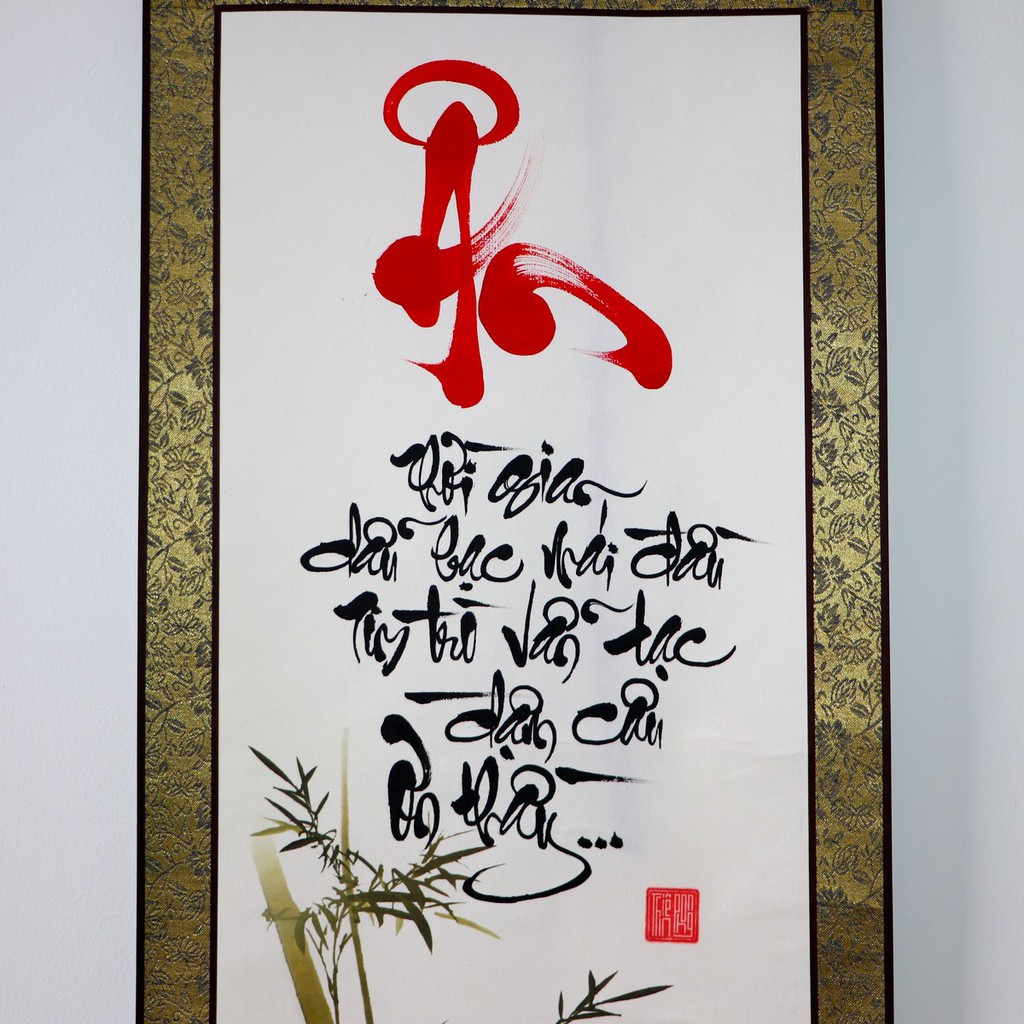 Ân
Thời gian
dẫu bạc mái đầu
Tim trò vẫn tạc
đậm câu
ơn thầy...